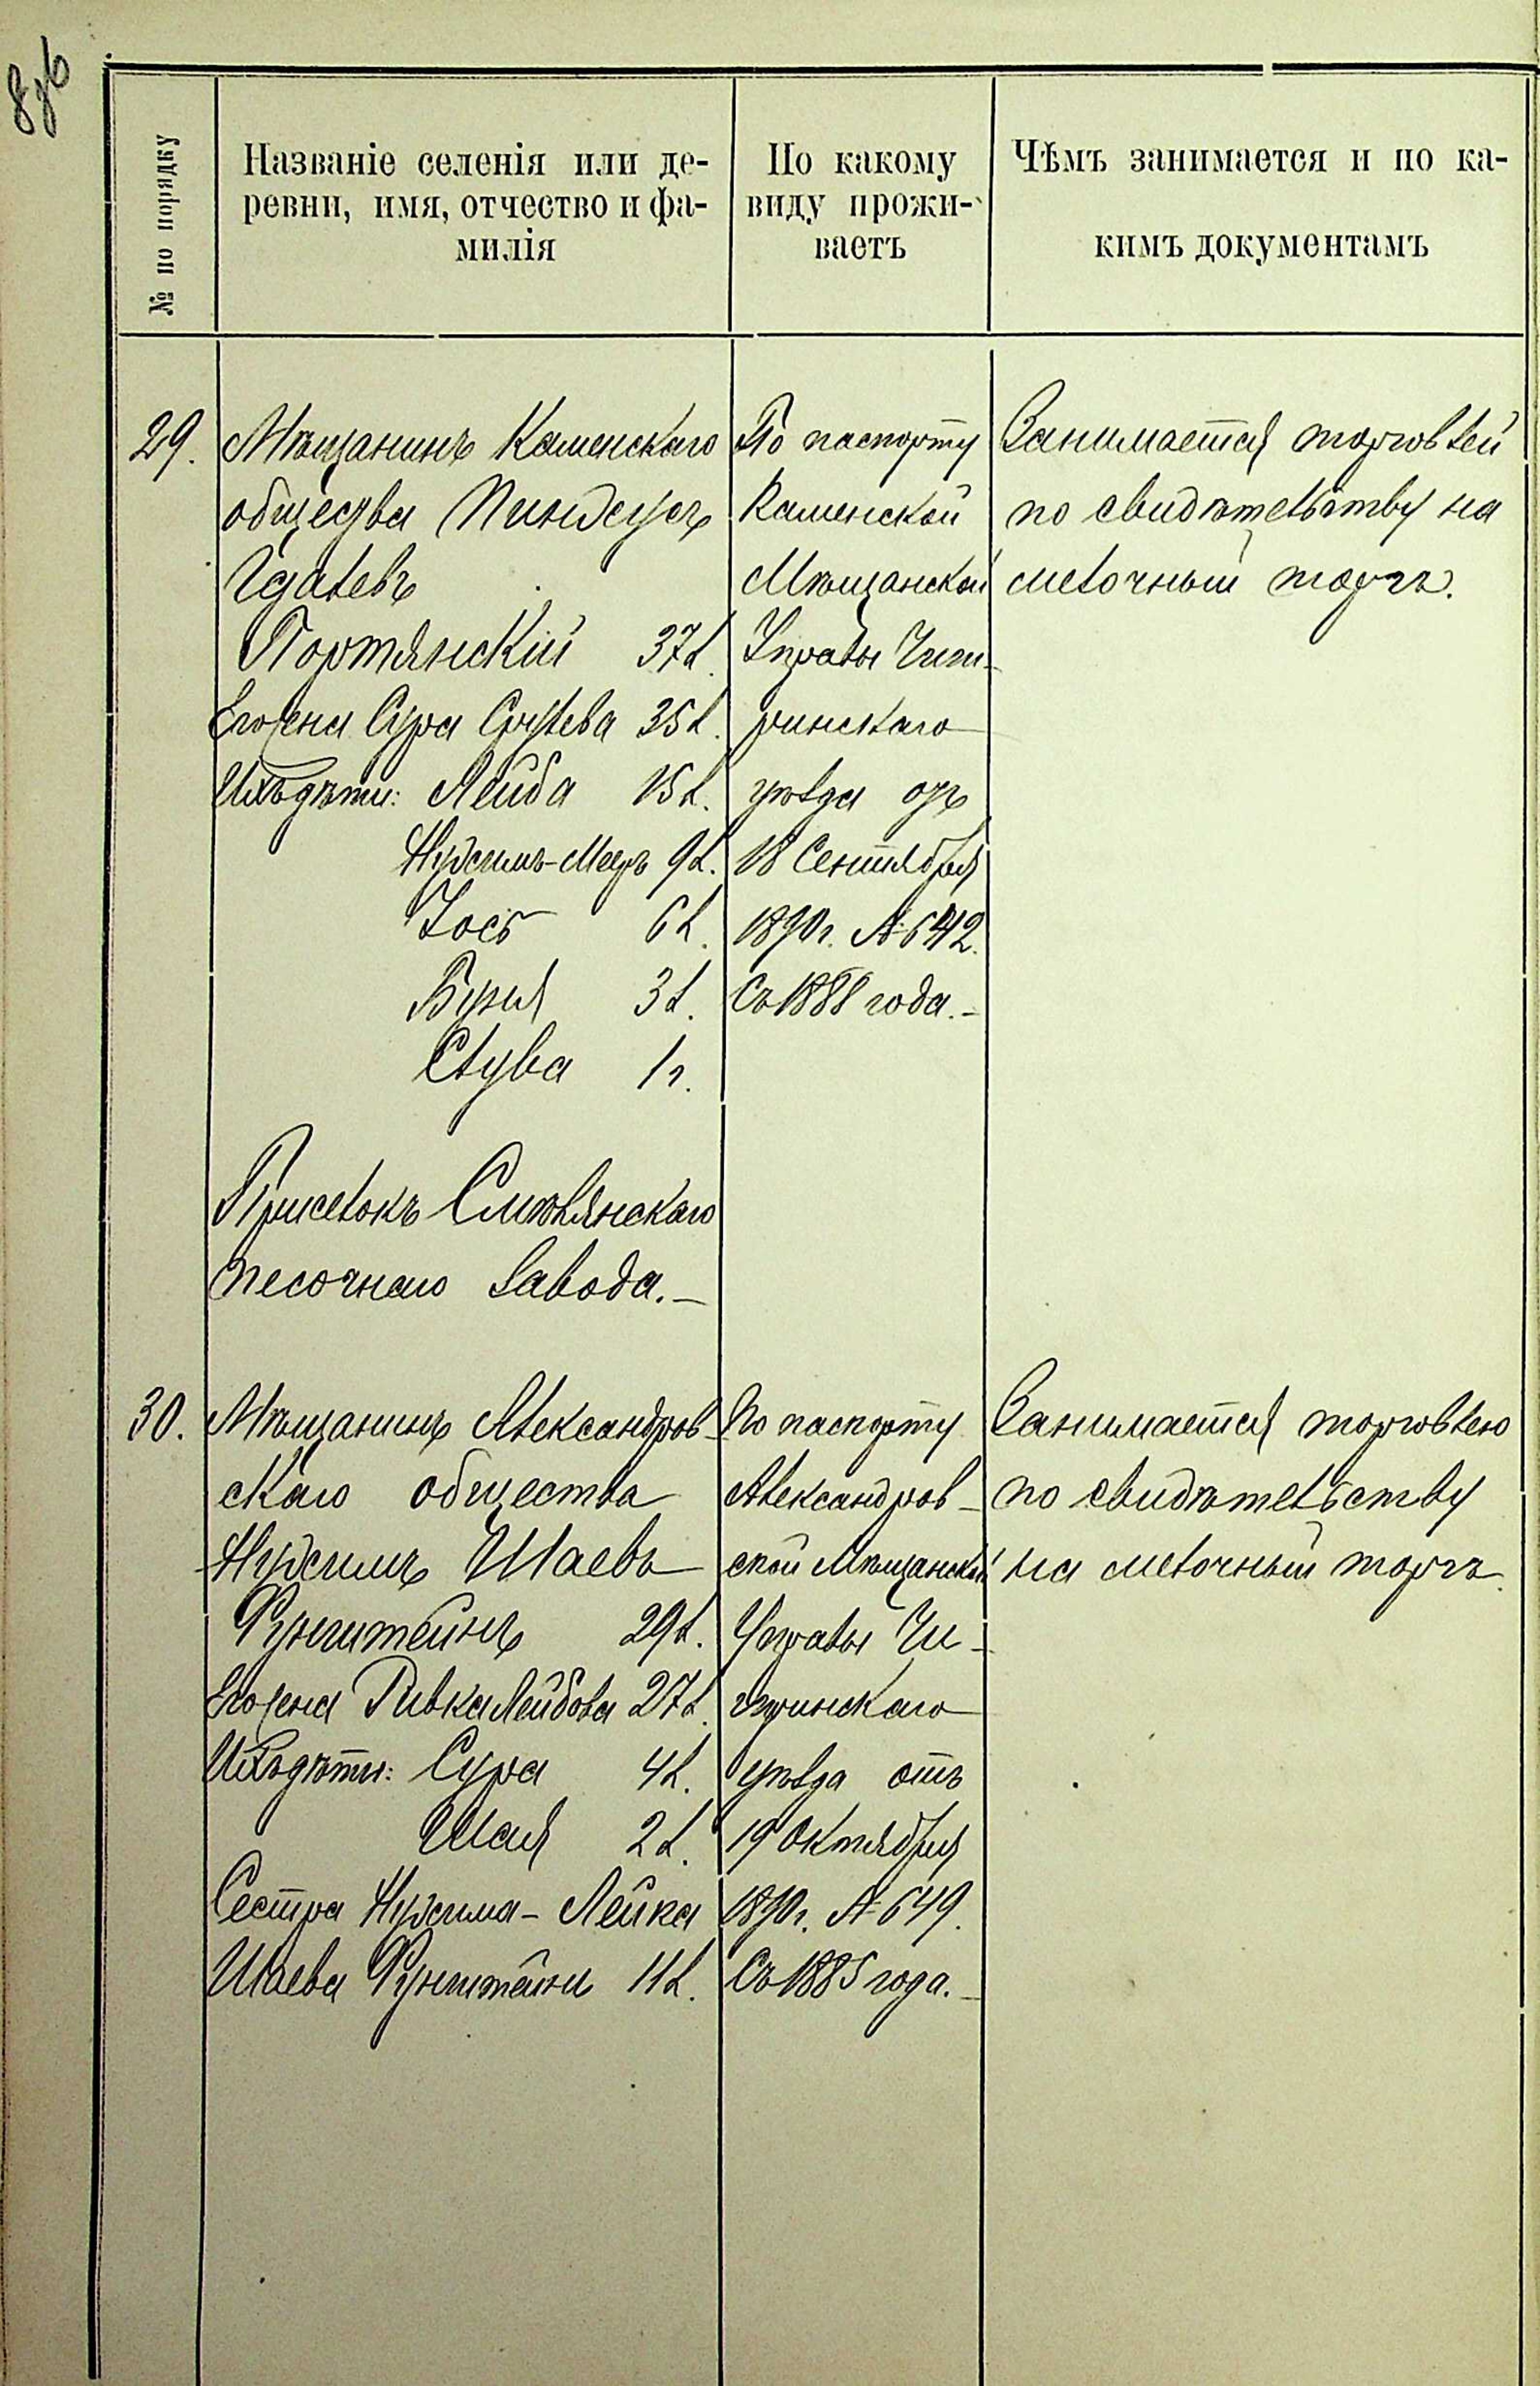 № по порядку
Названіе селенія или де-
ревни, имя, отчество и фа-
милія
По какому
виду прожи-
ваетъ
Чѣмъ занимается и по ка-
кимъ документамъ
29.
Мѣщанинъ Каменскаго
общества Пиндусъ
Портянскій 37 л.
Его жена Сура Срулева 35 л.
Ихъ дѣти: Лейба 15 л.
Нусимъ-Мееръ 9 л.
Іось 6 л.
3 л.
Слува 1 г.
По паспорту
Каменской
Мѣщанской
Управы Чиги-
ринскаго
уѣзда отъ
18 Сентября
1890 г. № 642.
Съ 1888 года.-
Занимается торговлей
по свидѣтельству на
мелочный торгъ.
Приселокъ Смѣлянскаго
песочнаго завода.-
30.
Мѣщанинъ Александров-
скаго общества
Нусимъ Шаевъ
Функштейнъ 29 л.
Его жена Ривка Лейбова 27 л.
Ихъ дѣти: Сура 4 л.
Шая 2 л.
Сестра Нусима - Лейка
Шаева Функштейнъ 11 л.
По паспорту
Александров-
ской Мѣщанской
Управы Чи-
гиринскаго
уѣзда отъ
19 Октября
1890 г. № 649.
Съ 1885 года.-
Занимается торговлею
по свидѣтельству
на мелочный торгъ.